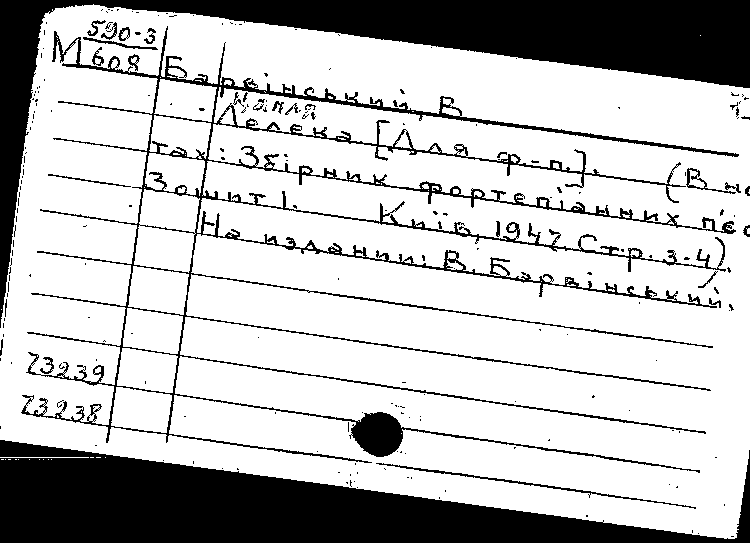 590-3
М 608
Барвінський, В
Цапля
Лелека [Для ф-п.]. (В но
тах: Збірник фортепіанних п'єс
Зошит 1. Київ, 1947. Стр. 3-4).
На издании: В. Барвінський.
73239
73238